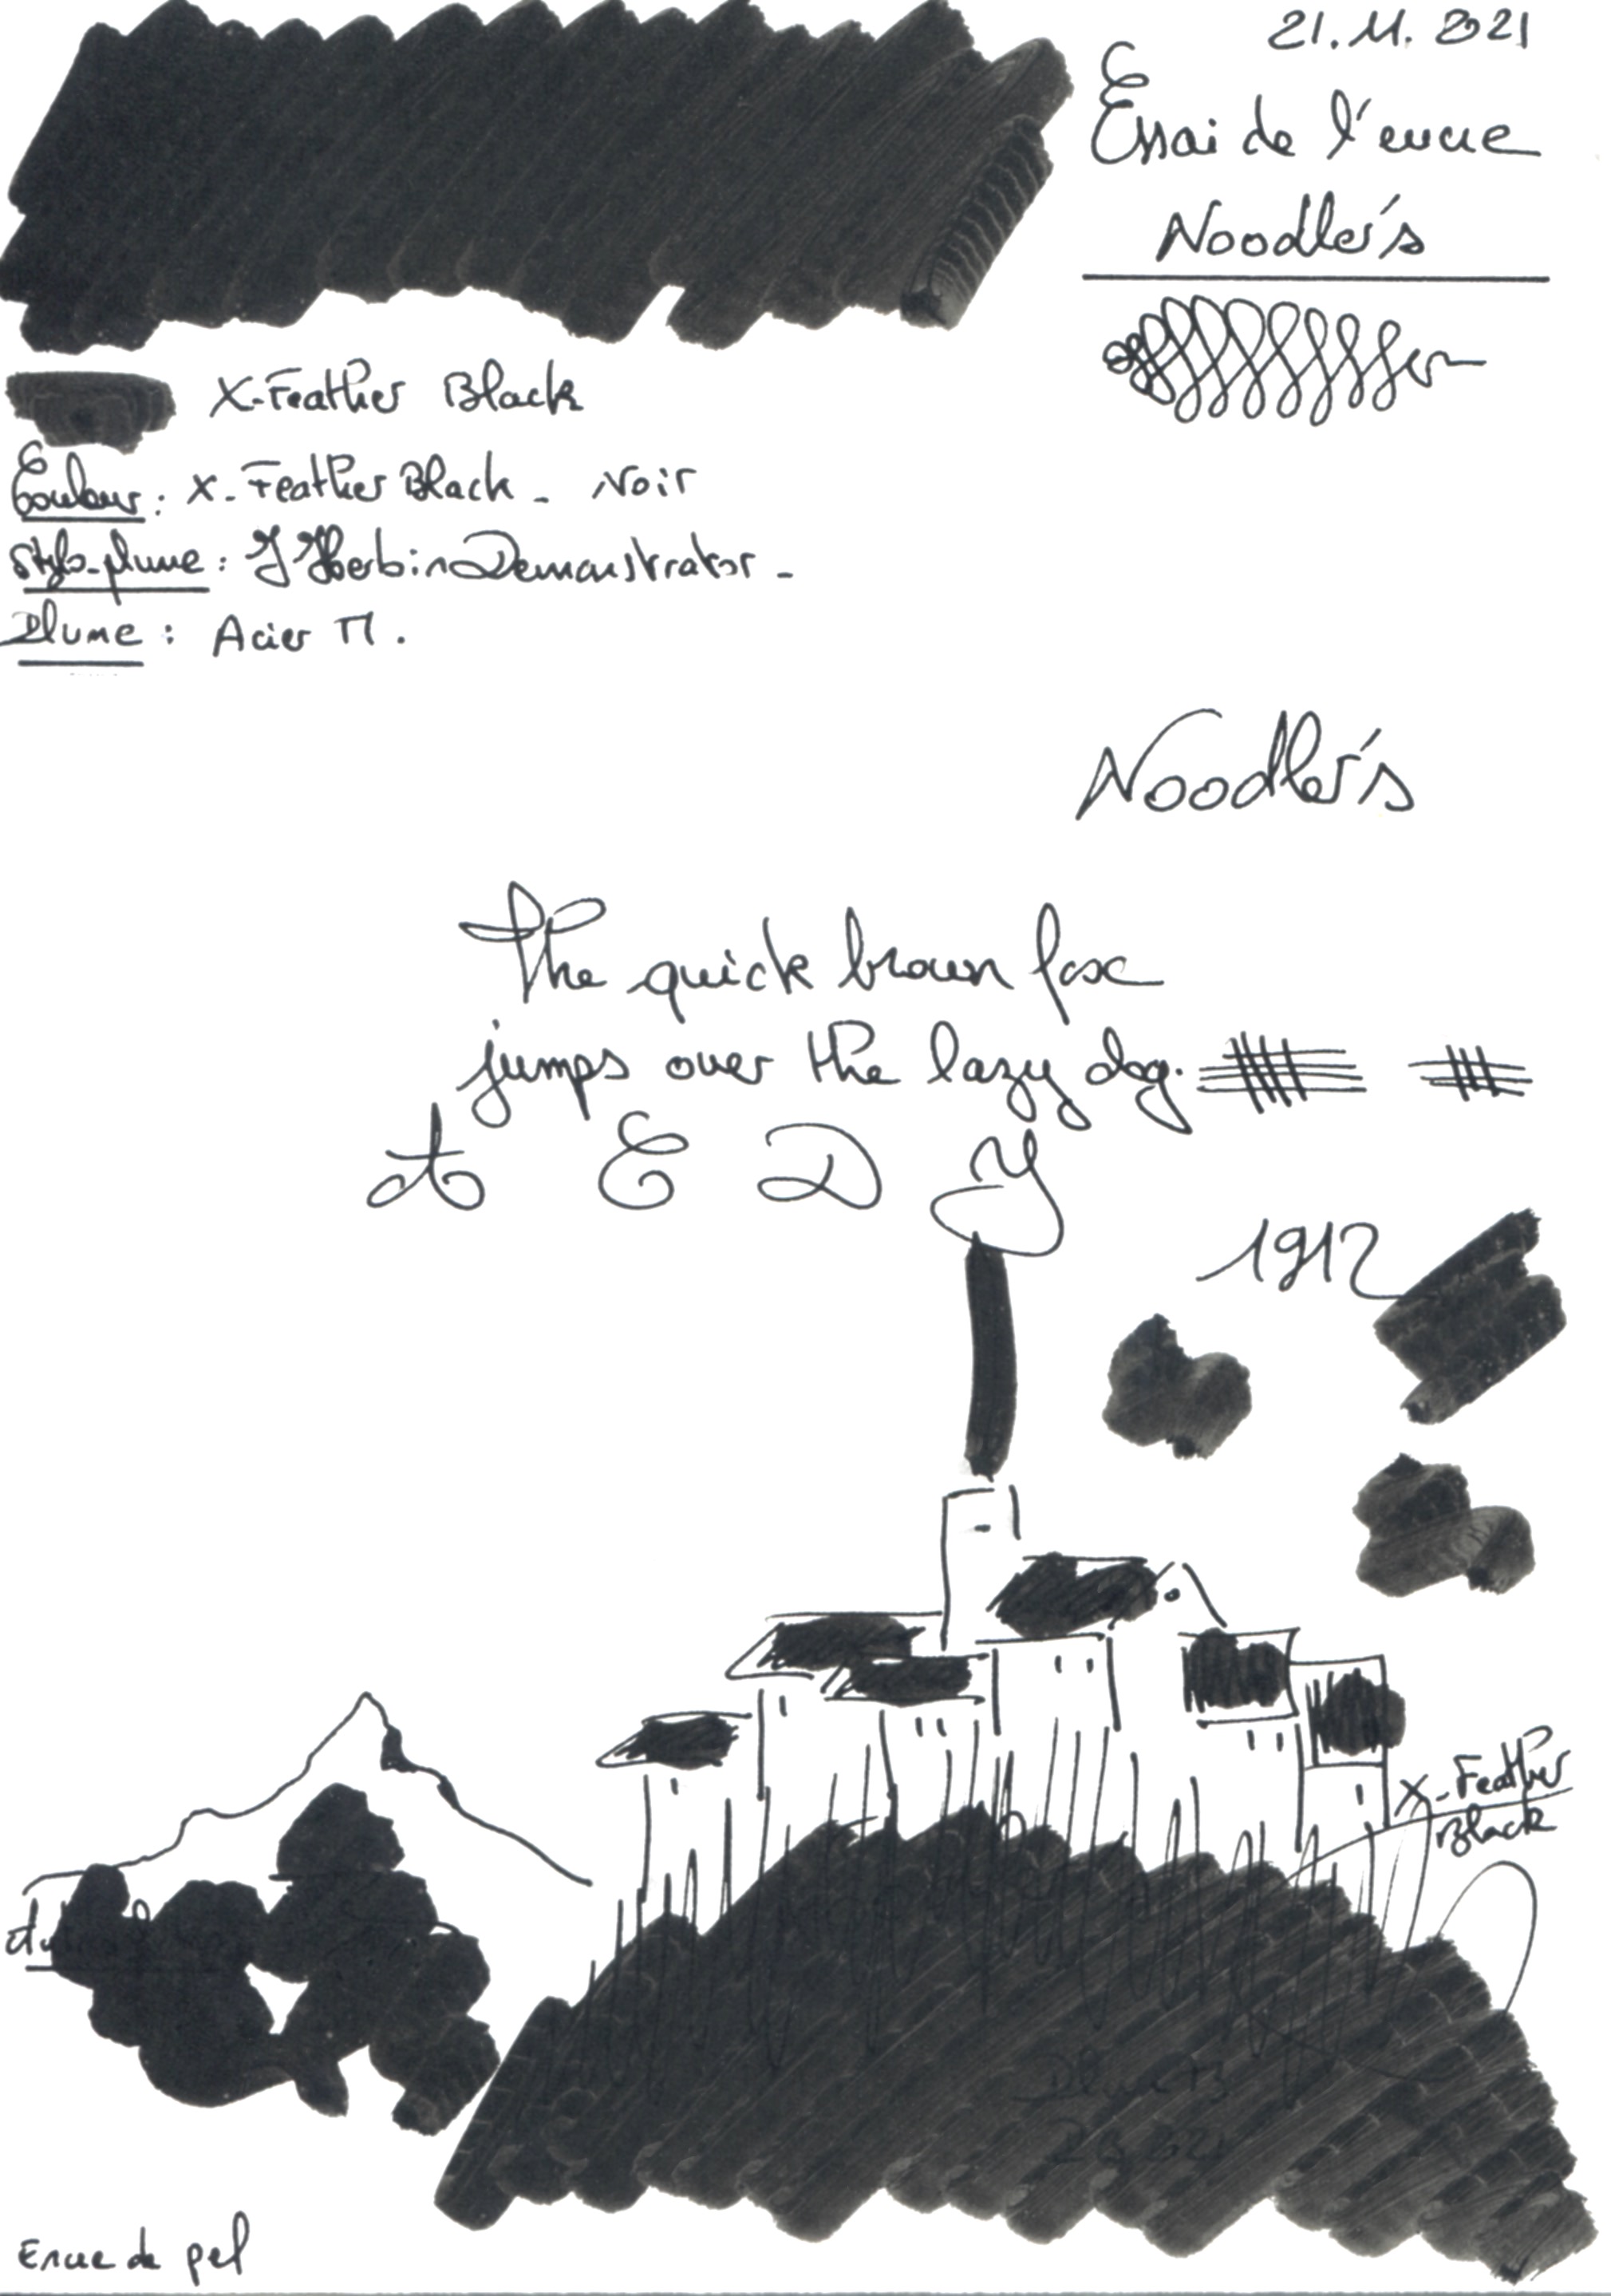 21.11.2021
Essai de l'encre
Noodler's
X-Feather Black
Couleur : X-Feather Black - Noir
Stylo-plume : J Herbin Demonstrator -
Plume : Acier M.
Noodler's
The quick brown fox
jumps over the lazy dog.
A E D Y
1912
X-Feather
Black
Encre de pef